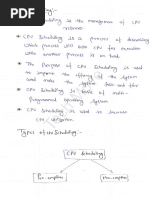 Scheduling:-
Scheduling is the management of CPU
resources.
* CPU Scheduling is a process of determining
which process will own CPU for execution
while another process is on hold.
* The Purpose of CPU Scheduling is used
to improve the efficiency of the system
and make the system fast
Programmed operating System.
* CPU Scheduling is used to increase
CPU utilization.
Types of the Scheduling:-
CPU Scheduling
Pre-emptive
Non-emptive